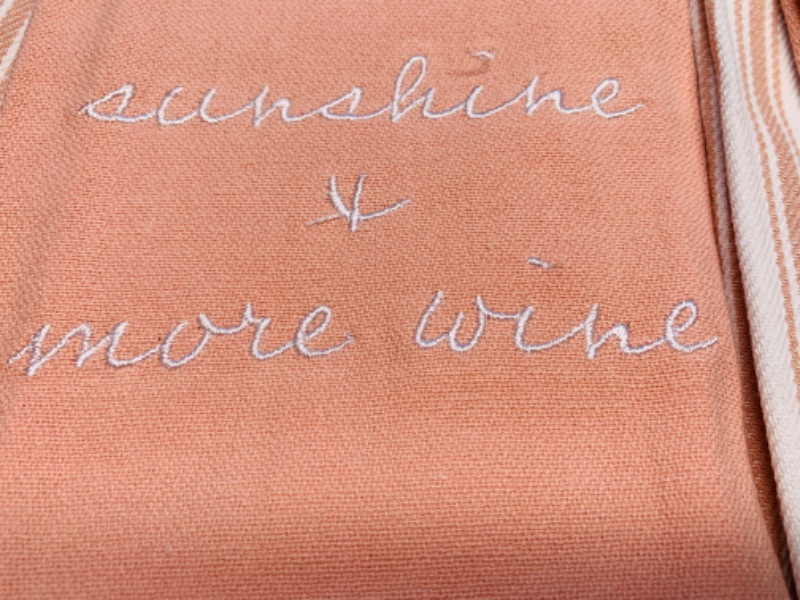 sunshine
+
more wine